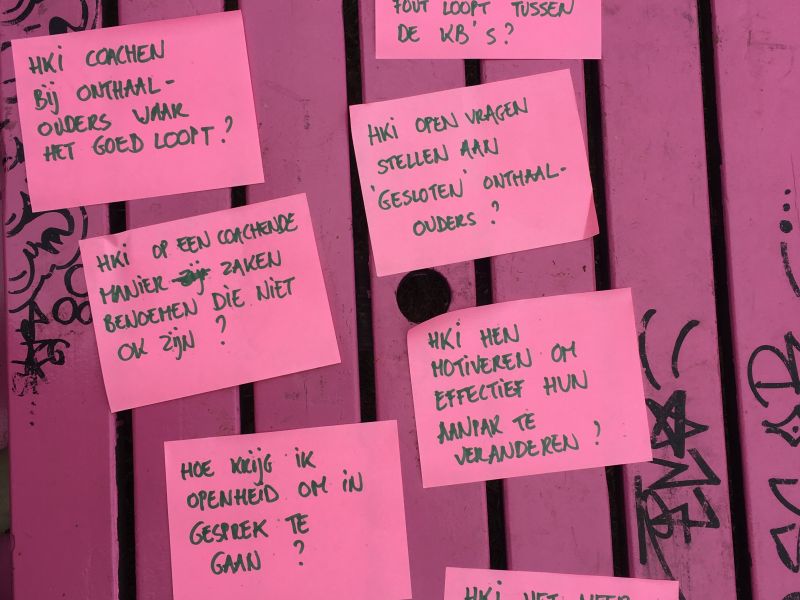 HKI COACHEN
BIJ ONTHAAL-
OUDERS WAAR
HET GOED LOOPT?
FOUT LOOPT TUSSEN
DE KB'S?
HKI OPEN VRAGEN
STELLEN AAN
'GESLOTEN' ONTHAAL-
OUDERS?
HKI OP EEN COACHENDE
MANIER ZAKEN
BENOEMEN DIE NIET
OK ZIJN?
HKI HEN
MOTIVEREN OM
EFFECTIEF HUN
AANPAK TE
VERANDEREN?
HOE KRIJG IK
OPENHEID OM IN
GESPREK TE
GAAN?
HKI HET MEER